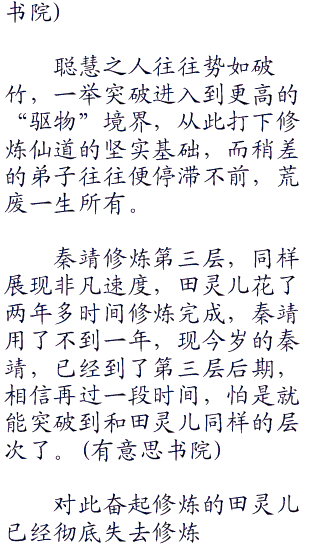 书院)
聪慧之人往往势如破
竹，一举突破进入到更高的
“驱物”境界，从此打下修
炼仙道的坚实基础，而稍差
的弟子往往便停滞不前，荒
废一生所有。
秦靖修炼第三层，同样
展现非凡速度，田灵儿花了
两年多时间修炼完成，秦靖
用了不到一年，现今岁的秦
靖，已经到了第三层后期，
相信再过一段时间，怕是就
能突破到和田灵儿同样的层
次了。(有意思书院)
对此奋起修炼的田灵儿
已经彻底失去修炼